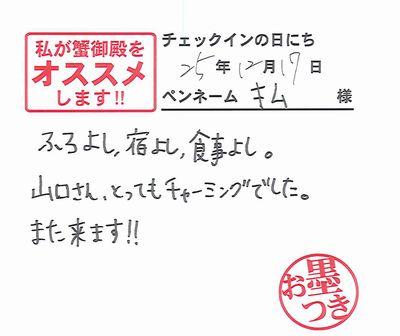 私が蟹御殿を
オススメ
します!!
チェックインの日にち
25年12月17日
ペンネーム キム 様
ふろよし,宿よし,食事よし。
山口さん、とってもチャーミングでした。
また来ます!!
お墨
つき